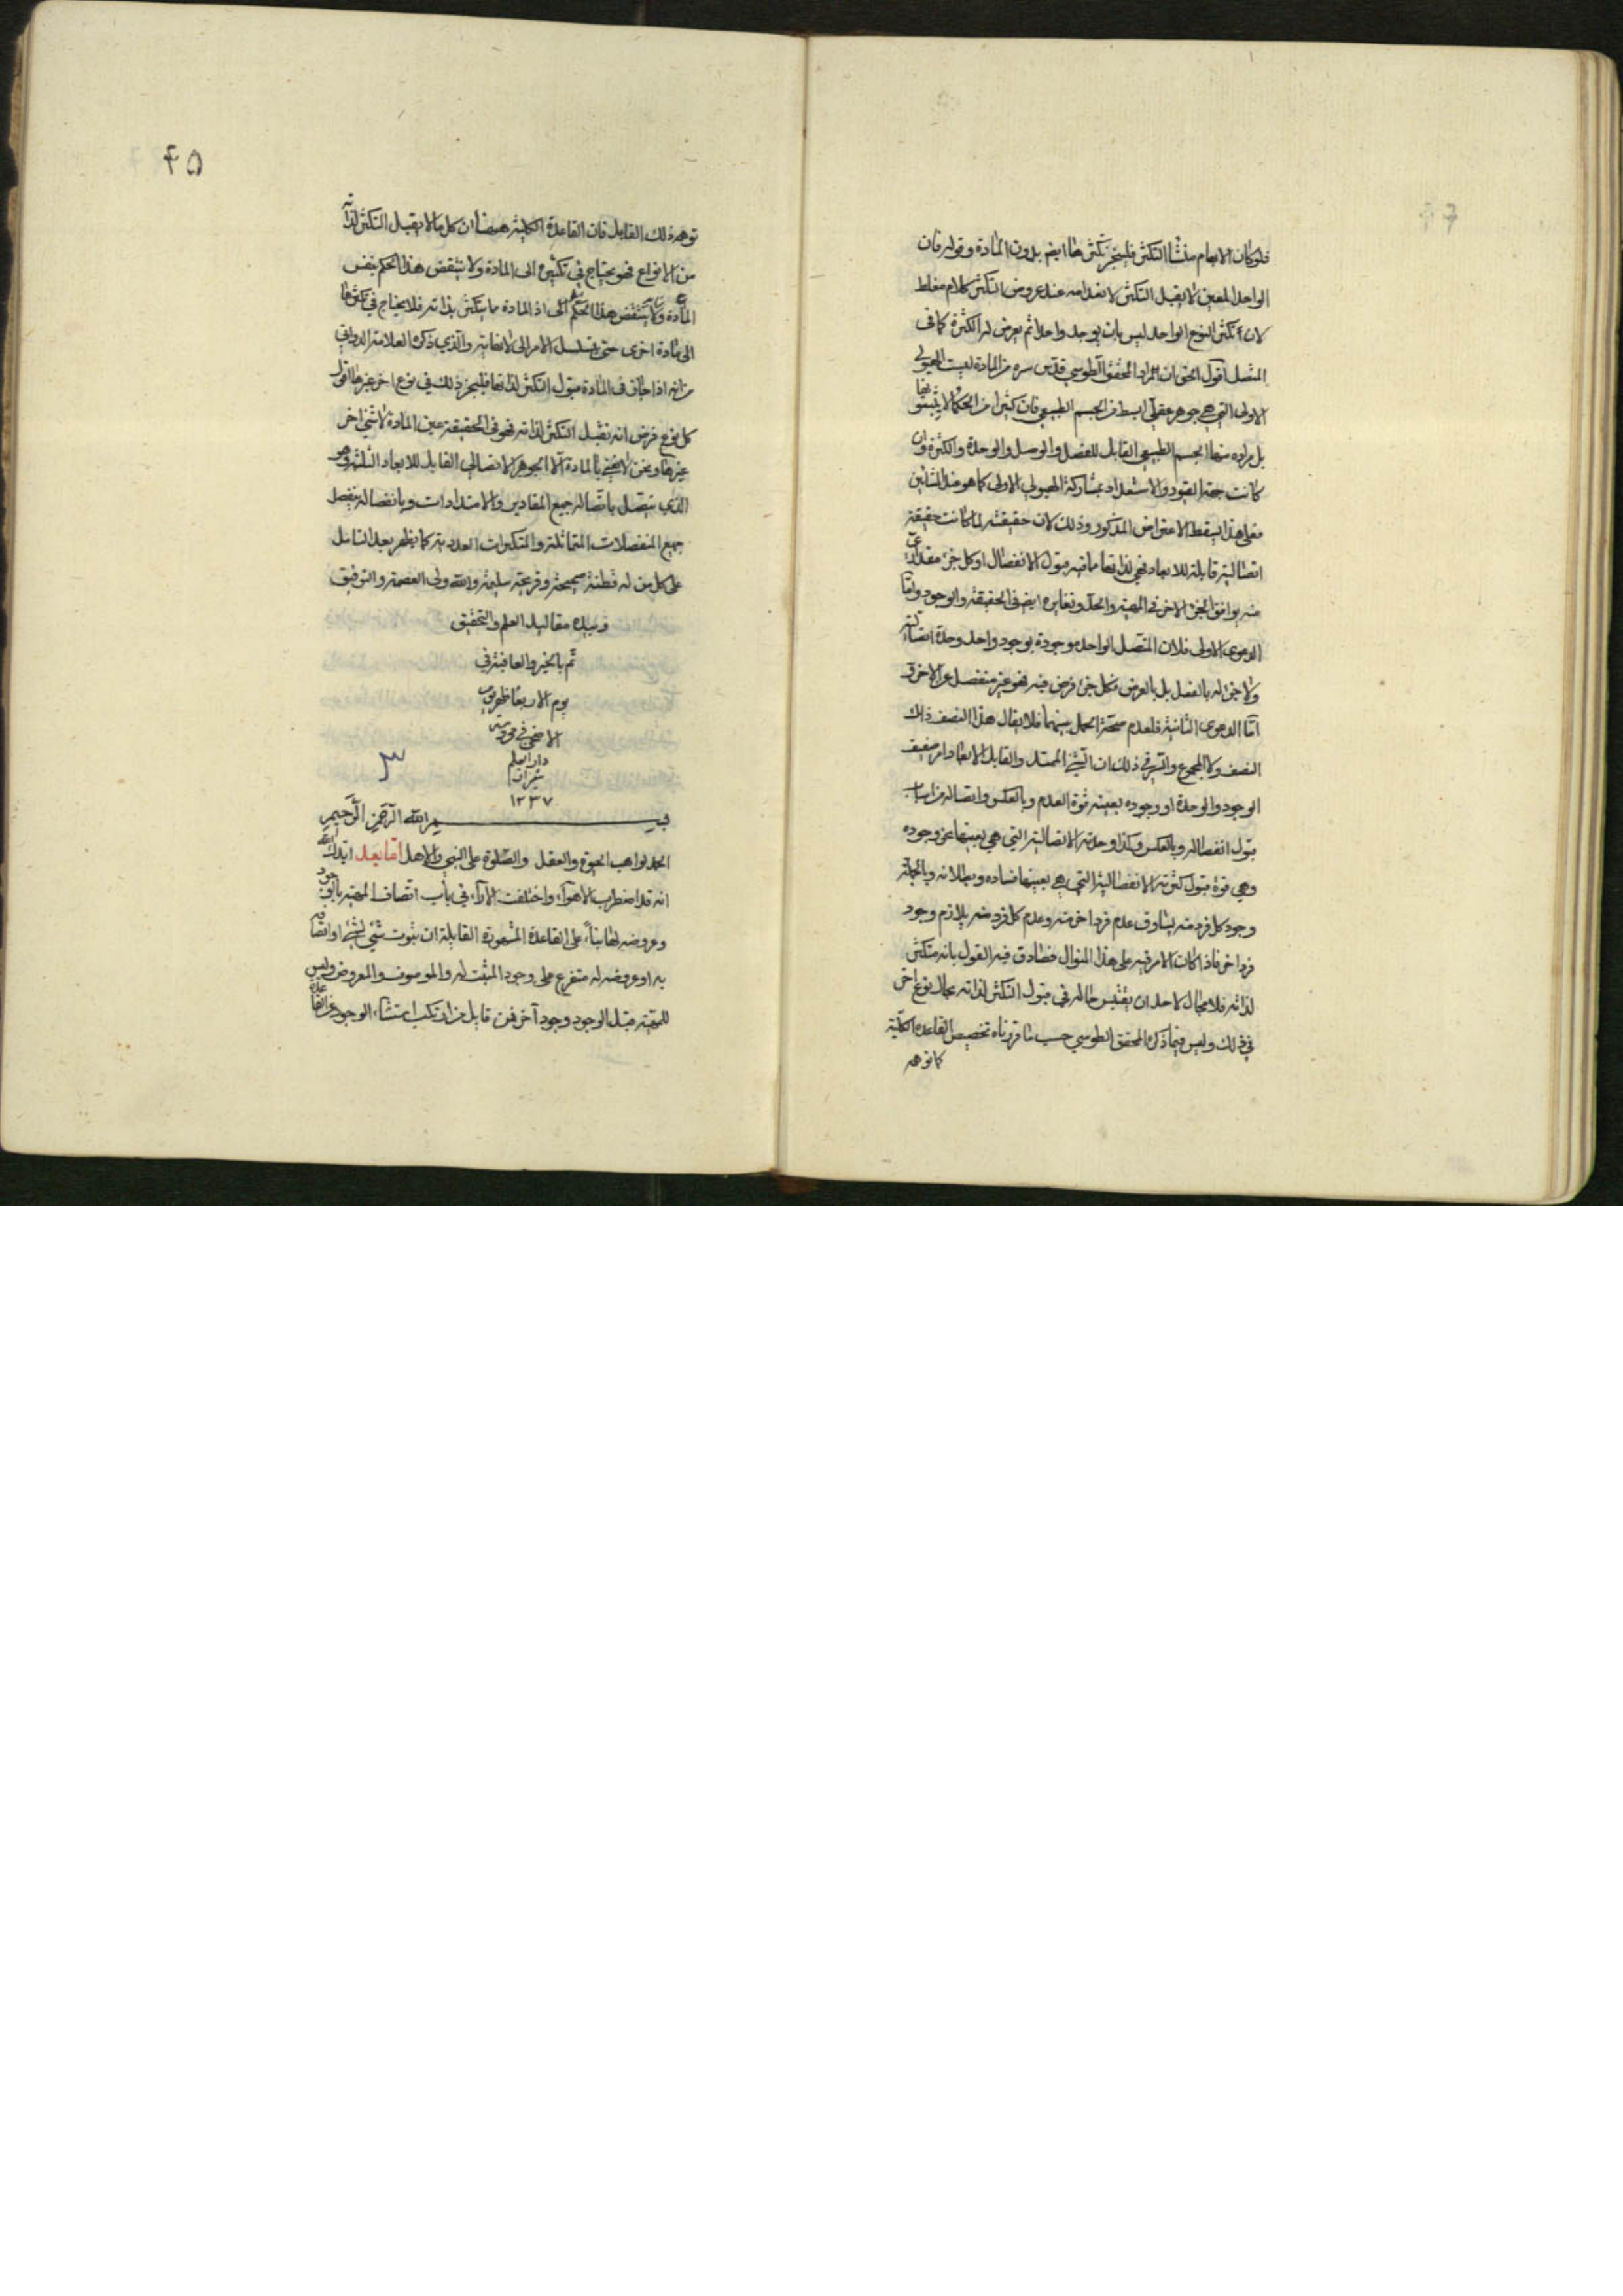 فلو كان الابهام منشأ التكثر فليجز تكثرها ايضم بدون المادة وقوله فان
الواحد المعين لا يقبل التكثر لانعدامه عند عروض التكثر كلام مغلط
لان تكثر النوع الواحد ليس بان يوجد واحدا ثم يعرض له الكثرة كما في
المتصل اقول الحق ان المراد المحقق الطوسي قدس سره من المادة ليست الهيولى
الاولى التي هي جوهر عقلي ابسط من الجسم الطبيعي فان كثيرا من الحكما لا يثبتونها
بل مراده منها الجسم الطبيعي القابل للفصل والوصل والوحدة والكثرة وان
كانت جهة القبول والاستعداد بمشاركة الهيولى الاولى كما هو عند المشائين
فعلى هذا يسقط الاعتراض المذكور وذلك لان حقيقته لما كانت حقيقة
اتصالية قابلة للابعاد ففي ذاتها ما فيه قبول الانفصال او كل جزء مقداري
منه يوافق الجزء الاخر في المهية والحد ونغايره ايضم في الحقيقة والوجود واما
الدعوى الاولى فلان المتصل الواحد موجودة بوجود واحد وحدة اتصالية
ولا جزء له بالفعل بل بالعرض فكل جزء فرض فيه فهو غير منفصل عن الاخر و
اما الدعوى الثانية فلعدم صحة الحمل بينهما فلا يقال هذا النصف ذاك
النصف ولا المجموع والسر في ذلك ان الشيء الممتد والقابل الابعاد امر ضعيف
الوجود والوحدة او وجوده بعينه قوة العدم وبالعكس واتصاله من اسباب
قبول انفصاله وبالعكس وكذا وحدته الاتصالية التي هي بعينها عن وجوده
وهي قوة قبول كثرته الانفصالية التي هي بعينها فساده وبطلانه وبالجملة
وجود كل فرد منه يساوق عدم فرد اخر منه وعدم كل فرد منه يلازم وجود
فرد اخر فاذا كان الامر فيه على هذا المنوال فصادق فيه القول بانه متكثر
لذاته فلا مجال لاحد ان يقيس حاله في قبول التكثر لذاته بحال نوع اخر
في ذلك وليس فيما ذكره المحقق الطوسي حسب ما قررناه تخصيص القاعدة الكلية
كما توهمه
٤٥
توهمه ذلك القايل فان القاعدة الكلية هيهنا ان كل ما لا يقبل التكثر لذاته
من الانواع فهو يحتاج في تكثره الى المادة ولا ينتقض هذا الحكم بنفس
المادة ولا ينتقض هذا الحكم الى اذ المادة ما يتكثر بذاته فلا يحتاج في تكثرها
الى مادة اخرى حتى يتسلسل الامر الى لا نهاية والذي ذكره العلامة الدواني
من انه اذا جاز في المادة قبول التكثر لذاتها فليجز ذلك في نوع اخر غيرها اقول
كل نوع فرض انه تقبل التكثر لذاته فهو في الحقيقة عين المادة لا شيء اخر
غيرها ونحن لا نعني بالمادة الا الجوهر الاتصالي القابل للابعاد الثلثة وهو
الذي يتصل باتصاله جميع المقادير والامتدادات وبانفصاله ينفصل
جميع المنفصلات المتماثلة والمتكثرات العددية كما يظهر بعد التامل
على كل من له فطنة صحيحة وقريحة سليمة والله ولي العصمة والتوفيق
وبيده مقاليد العلم والتحقيق
تم بالخير والعافية في
يوم الاربعا ظهر يوم
الاضحى في محروسة
دار العلم
شيراز
١٢٣٧
٣
بسم الله الرحمن الرحيم
الحمد لواهب الحيوة والعقل والصلوة على النبي والاهل اما بعد ايدك الله
انه قد اضطرب الاهواء واختلفت الاراء في باب اتصاف المهية بالوجود
وعروضه لها بناء على القاعدة المشهورة القايلة ان ثبوت شيء لشيء او اتصافه
به او عروضه له متفرع على وجود المثبت له والموصوف والمعروض وليس
للمهية قبل الوجود وجود آخر فمن قايل من ارتكب استثناء الوجود عن القاعدة